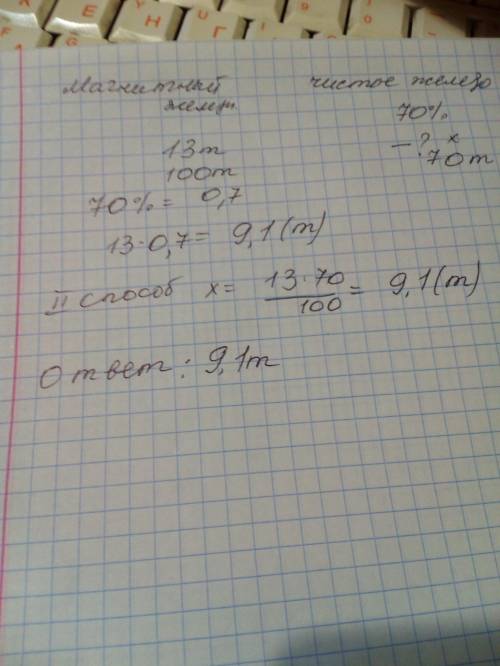 Магнитный чистое железо
желез 70%
13т - ? x
100т 70т
70% = 0,7
13·0,7= 9,1(т)
II способ x= 13·70/100 = 9,1(т)
Ответ: 9,1т